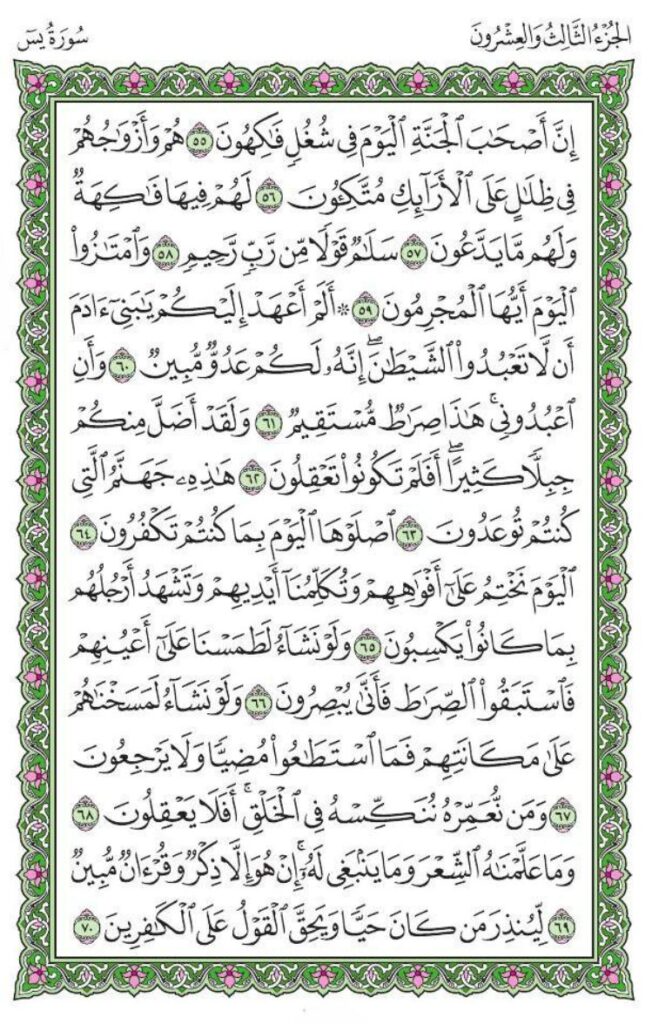 الجُزْءُ الثَّالِثُ وَالعِشْرُونَ
سُورَةُ يسٓ
إِنَّ أَصْحَٰبَ ٱلْجَنَّةِ ٱلْيَوْمَ فِى شُغُلٍ فَٰكِهُونَ ٥٥ هُمْ وَأَزْوَٰجُهُمْ
فِى ظِلَٰلٍ عَلَى ٱلْأَرَآئِكِ مُتَّكِـُٔونَ ٥٦ لَهُمْ فِيهَا فَٰكِهَةٌ
وَلَهُم مَّا يَدَّعُونَ ٥٧ سَلَٰمٌ قَوْلًا مِّن رَّبٍّ رَّحِيمٍ ٥٨ وَٱمْتَٰزُوا۟
ٱلْيَوْمَ أَيُّهَا ٱلْمُجْرِمُونَ ٥٩ ۞ أَلَمْ أَعْهَدْ إِلَيْكُمْ يَٰبَنِىٓ ءَادَمَ
أَن لَّا تَعْبُدُوا۟ ٱلشَّيْطَٰنَ ۖ إِنَّهُۥ لَكُمْ عَدُوٌّ مُّبِينٌ ٦٠ وَأَنِ
ٱعْبُدُونِى ۚ هَٰذَا صِرَٰطٌ مُّسْتَقِيمٌ ٦١ وَلَقَدْ أَضَلَّ مِنكُمْ
جِبِلًّا كَثِيرًا ۖ أَفَلَمْ تَكُونُوا۟ تَعْقِلُونَ ٦٢ هَٰذِهِۦ جَهَنَّمُ ٱلَّتِى
كُنتُمْ تُوعَدُونَ ٦٣ ٱصْلَوْهَا ٱلْيَوْمَ بِمَا كُنتُمْ تَكْفُرُونَ ٦٤
ٱلْيَوْمَ نَخْتِمُ عَلَىٰٓ أَفْوَٰهِهِمْ وَتُكَلِّمُنَآ أَيْدِيهِمْ وَتَشْهَدُ أَرْجُلُهُم
بِمَا كَانُوا۟ يَكْسِبُونَ ٦٥ وَلَوْ نَشَآءُ لَطَمَسْنَا عَلَىٰٓ أَعْيُنِهِمْ
فَٱسْتَبَقُوا۟ ٱلصِّرَٰطَ فَأَنَّىٰ يُبْصِرُونَ ٦٦ وَلَوْ نَشَآءُ لَمَسَخْنَٰهُمْ
عَلَىٰ مَكَانَتِهِمْ فَمَا ٱسْتَطَٰعُوا۟ مُضِيًّا وَلَا يَرْجِعُونَ
٦٧ وَمَن نُّعَمِّرْهُ نُنَكِّسْهُ فِى ٱلْخَلْقِ ۖ أَفَلَا يَعْقِلُونَ ٦٨
وَمَا عَلَّمْنَٰهُ ٱلشِّعْرَ وَمَا يَنۢبَغِى لَهُۥٓ ۚ إِنْ هُوَ إِلَّا ذِكْرٌ وَقُرْءَانٌ مُّبِينٌ
٦٩ لِّيُنذِرَ مَن كَانَ حَيًّا وَيَحِقَّ ٱلْقَوْلُ عَلَى ٱلْكَٰفِرِينَ ٧٠